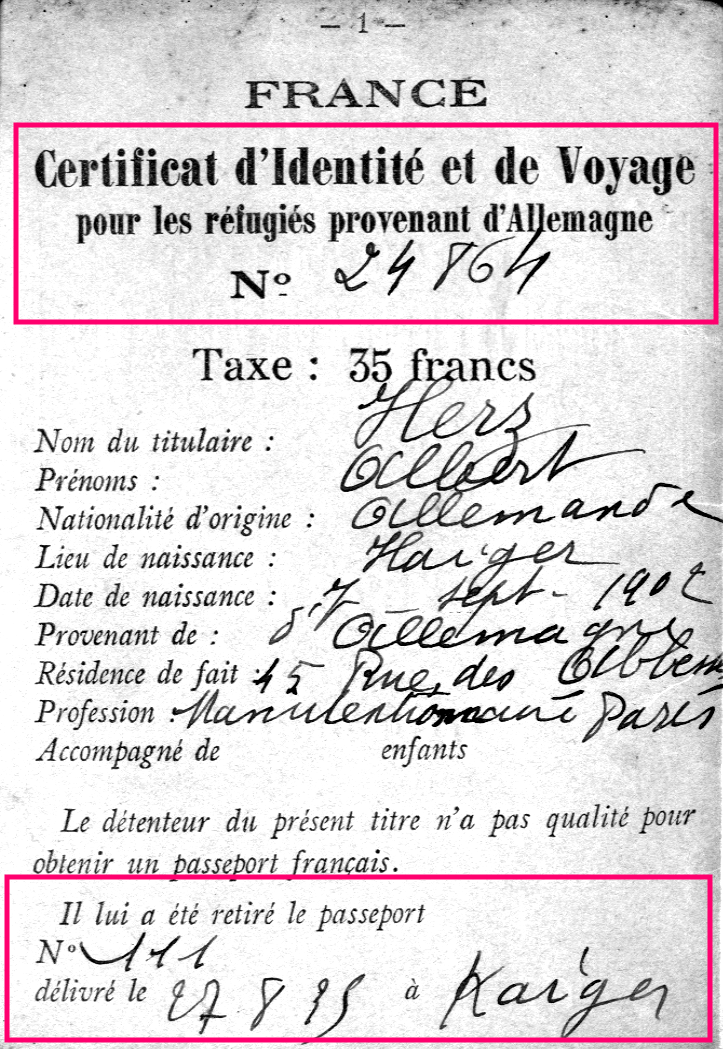 — 1 —
FRANCE
Certificat d'Identité et de Voyage
pour les réfugiés provenant d'Allemagne
Nº 24864
Taxe : 35 francs
Nom du titulaire : Herz
Prénoms : Albert
Nationalité d'origine : Allemande
Lieu de naissance : Haiger
Date de naissance : 7 sept. 1902
Provenant de : d'Allemagne
Résidence de fait : 45 Rue des
Profession : Manutentionnaire Paris
Accompagné de enfants
Le détenteur du présent titre n'a pas qualité pour
obtenir un passeport français.
Il lui a été retiré le passeport
Nº 111
délivré le 27 8 35 à Haiger